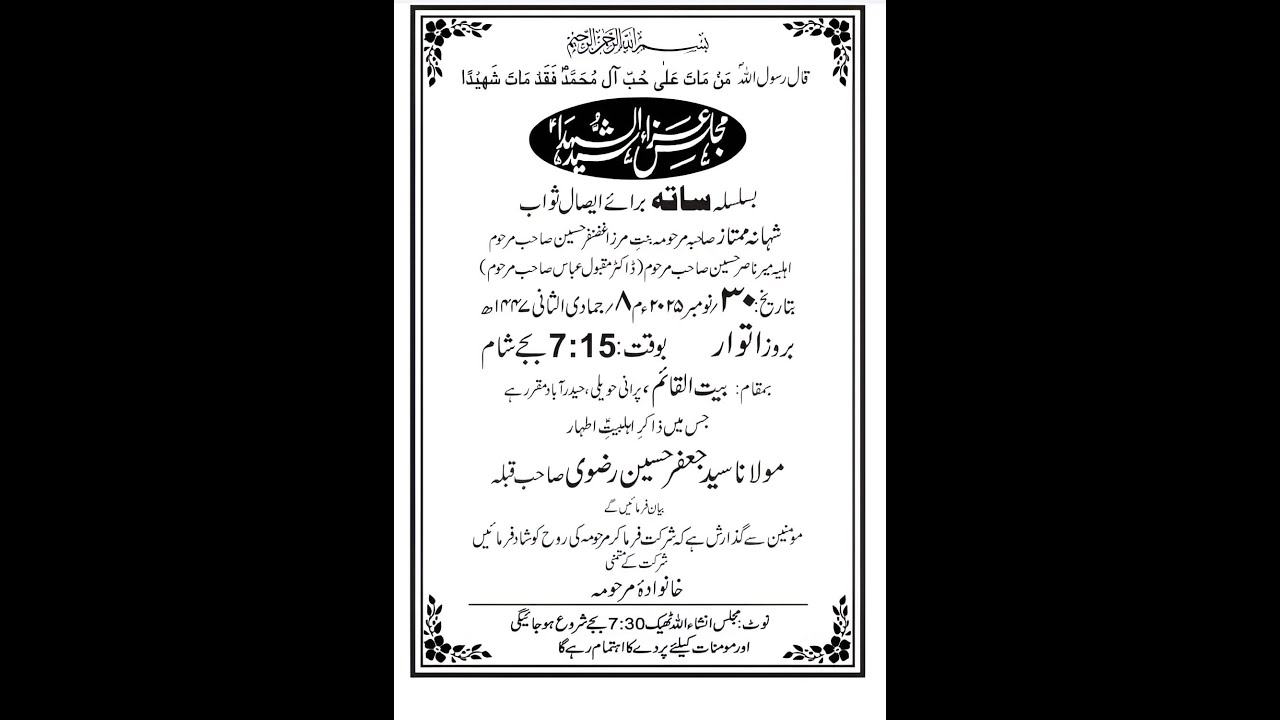 بسم اللہ الرحمن الرحیم
قال رسول اللہؐ مَنْ مَاتَ عَلٰی حُبِّ آلِ مُحَمَّدٍؐ فَقَدْ مَاتَ شَهِيْدًا
مجلس عزاء سید الشہداءؑ
بسلسلہ ساتہ برائے ایصال ثواب
شہانہ ممتاز صاحبہ مرحومہ بنتِ مرزا غضنفر حسین صاحب مرحوم
اہلیہ میر ناصر حسین صاحب مرحوم (ڈاکٹر مقبول عباس صاحب مرحوم)
بتاریخ: ۳۰/ نومبر ۲۰۲۵ءم ۸/ جمادی الثانی ۱۴۴۷ھ
بروز اتوار بوقت: 7:15 بجے شام
بمقام: بیت القائم، پرانی حویلی، حیدرآباد مقرر ہے
جس میں ذاکرِ اہلبیتِؑ اطہار
مولانا سید جعفر حسین رضوی صاحب قبلہ
بیان فرمائیں گے
مومنین سے گذارش ہے کہ شرکت فرما کر مرحومہ کی روح کو شاد فرمائیں
شرکت کے متمنی
خانوادۂ مرحومہ
نوٹ: مجلس انشاء اللہ ٹھیک 7:30 بجے شروع ہوجائیگی
اور مومنات کیلئے پردے کا اہتمام رہے گا